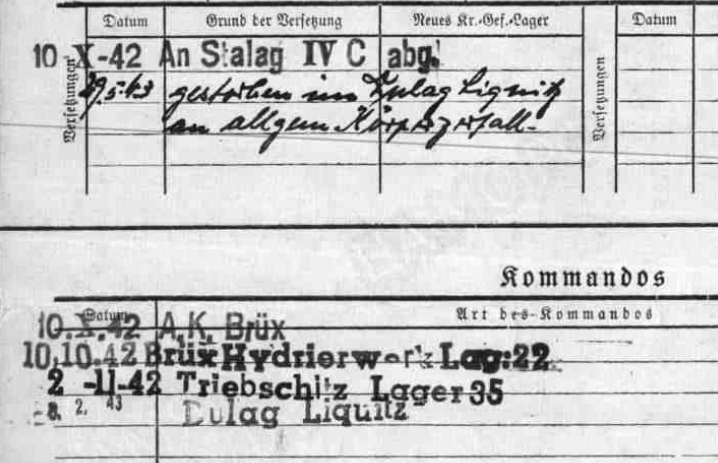 Datum Grund der Versetzung Neues Kr.-Gef.-Lager Datum
10-X-42 An Stalag IV C abg.
Versetzungen
29.5.43 gestorben im Dulag Lignitz
an allgem. Körperzerfall.
Versetzungen
Kommandos
Datum Art des Kommandos
10.X.42 A.K. Brüx
10.10.42 Brüx Hydrierwerk Lag:22
2-11-42 Triebschitz Lager 35
8. 2. 43 Dulag Liquitz